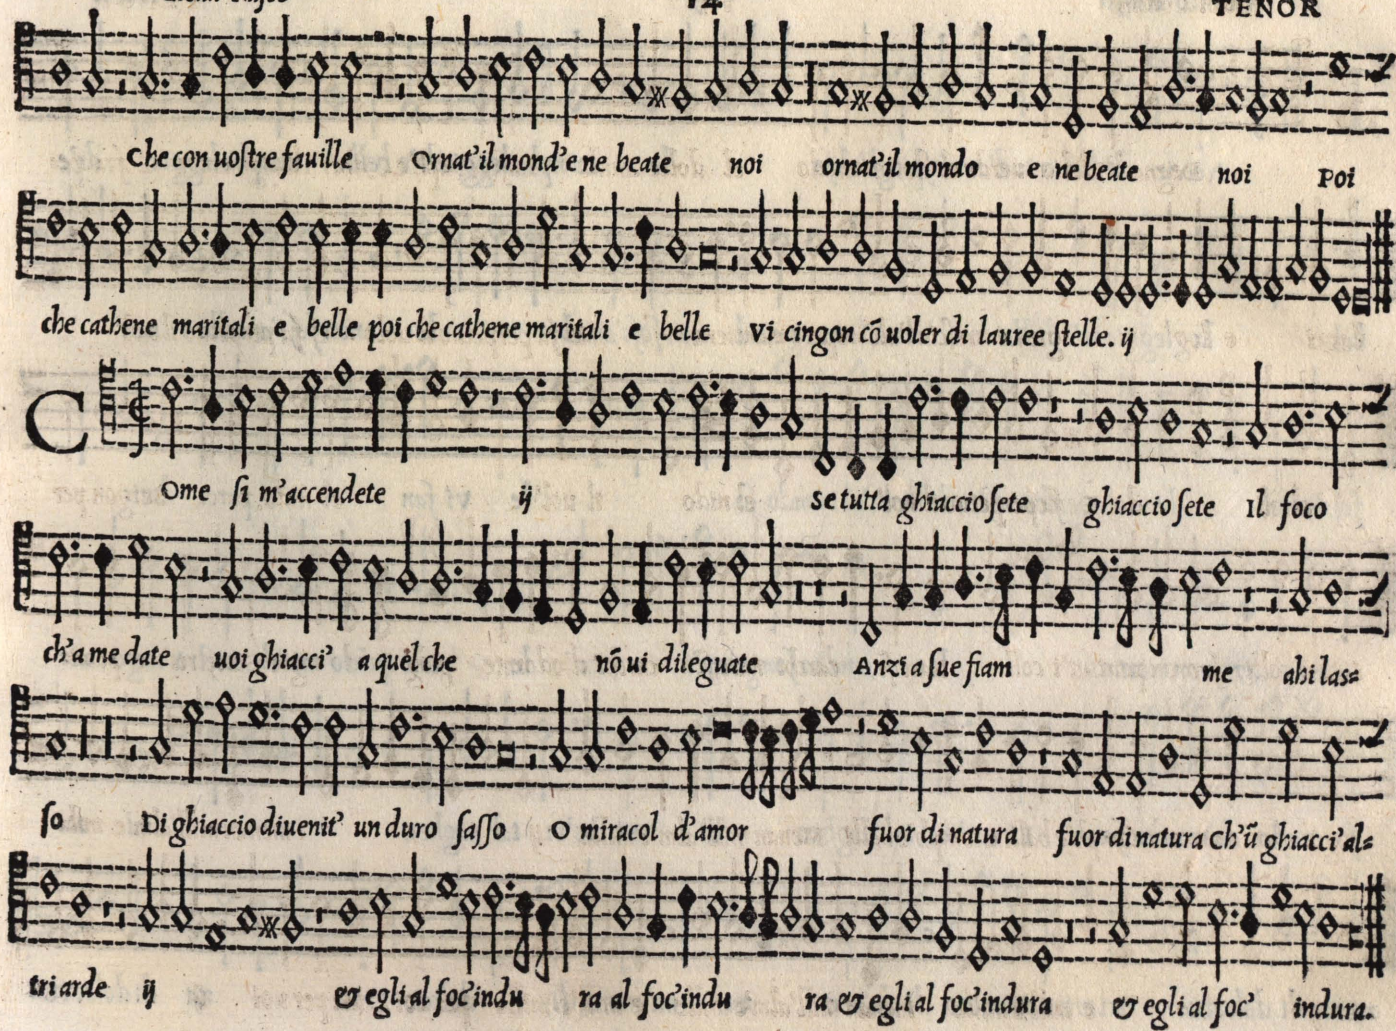 14 TENOR
Che con uoſtre fauille Ornat'il mond'e ne beate noi ornat'il mondo e ne beate noi Poi
che cathene maritali e belle poi che cathene maritali e belle Vi cingon cõ uoler di lauree ſtelle. ij
C
Ome ſi m'accendete ij Se tutta ghiaccio ſete ghiaccio ſete Il foco
ch'a me date uoi ghiacci' a quel che nõ ui dileguate Anzi a ſue fiam me ahi las=
ſo Di ghiaccio diuenit' un duro ſaſſo O miracol d'amor fuor di natura fuor di natura Ch'ũ ghiacci' al=
tri arde ij & egli al foc'indu ra al foc'indu ra & egli al foc'indura & egli al foc' indura.